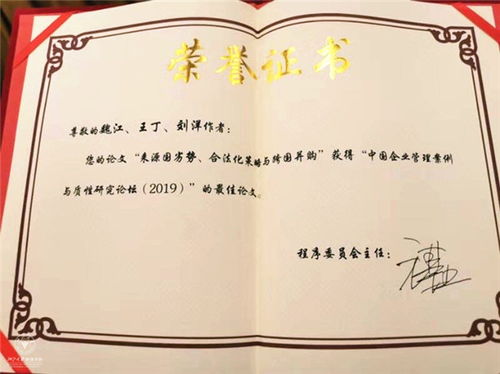 荣誉证书
尊敬的魏江、王丁、刘洋作者：
您的论文“来源国劣势、合法化策略与跨国并购”获得“中国企业管理案例
与质性研究论坛（2019）”的最佳论文。
程序委员会主任：